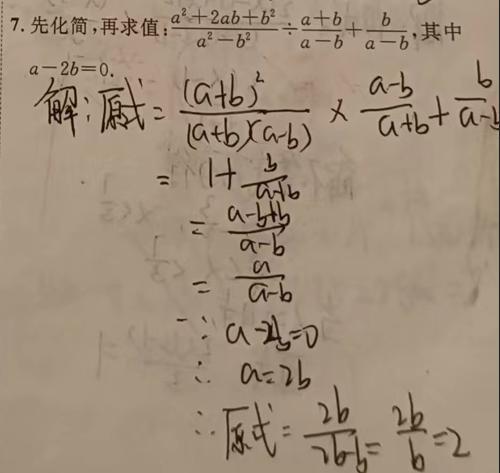 7. 先化简,再求值: \frac{a²+2ab+b²}{a²-b²} ÷ \frac{a+b}{a-b} + \frac{b}{a-b}, 其中
a-2b=0.
解:原式= \frac{(a+b)²}{(a+b)(a-b)} × \frac{a-b}{a+b} + \frac{b}{a-b}
= 1+ \frac{b}{a-b}
= \frac{a-b+b}{a-b}
= \frac{a}{a-b}
∵ a-2b=0
∴ a=2b
∴ 原式= \frac{2b}{2b-b} = \frac{2b}{b} =2